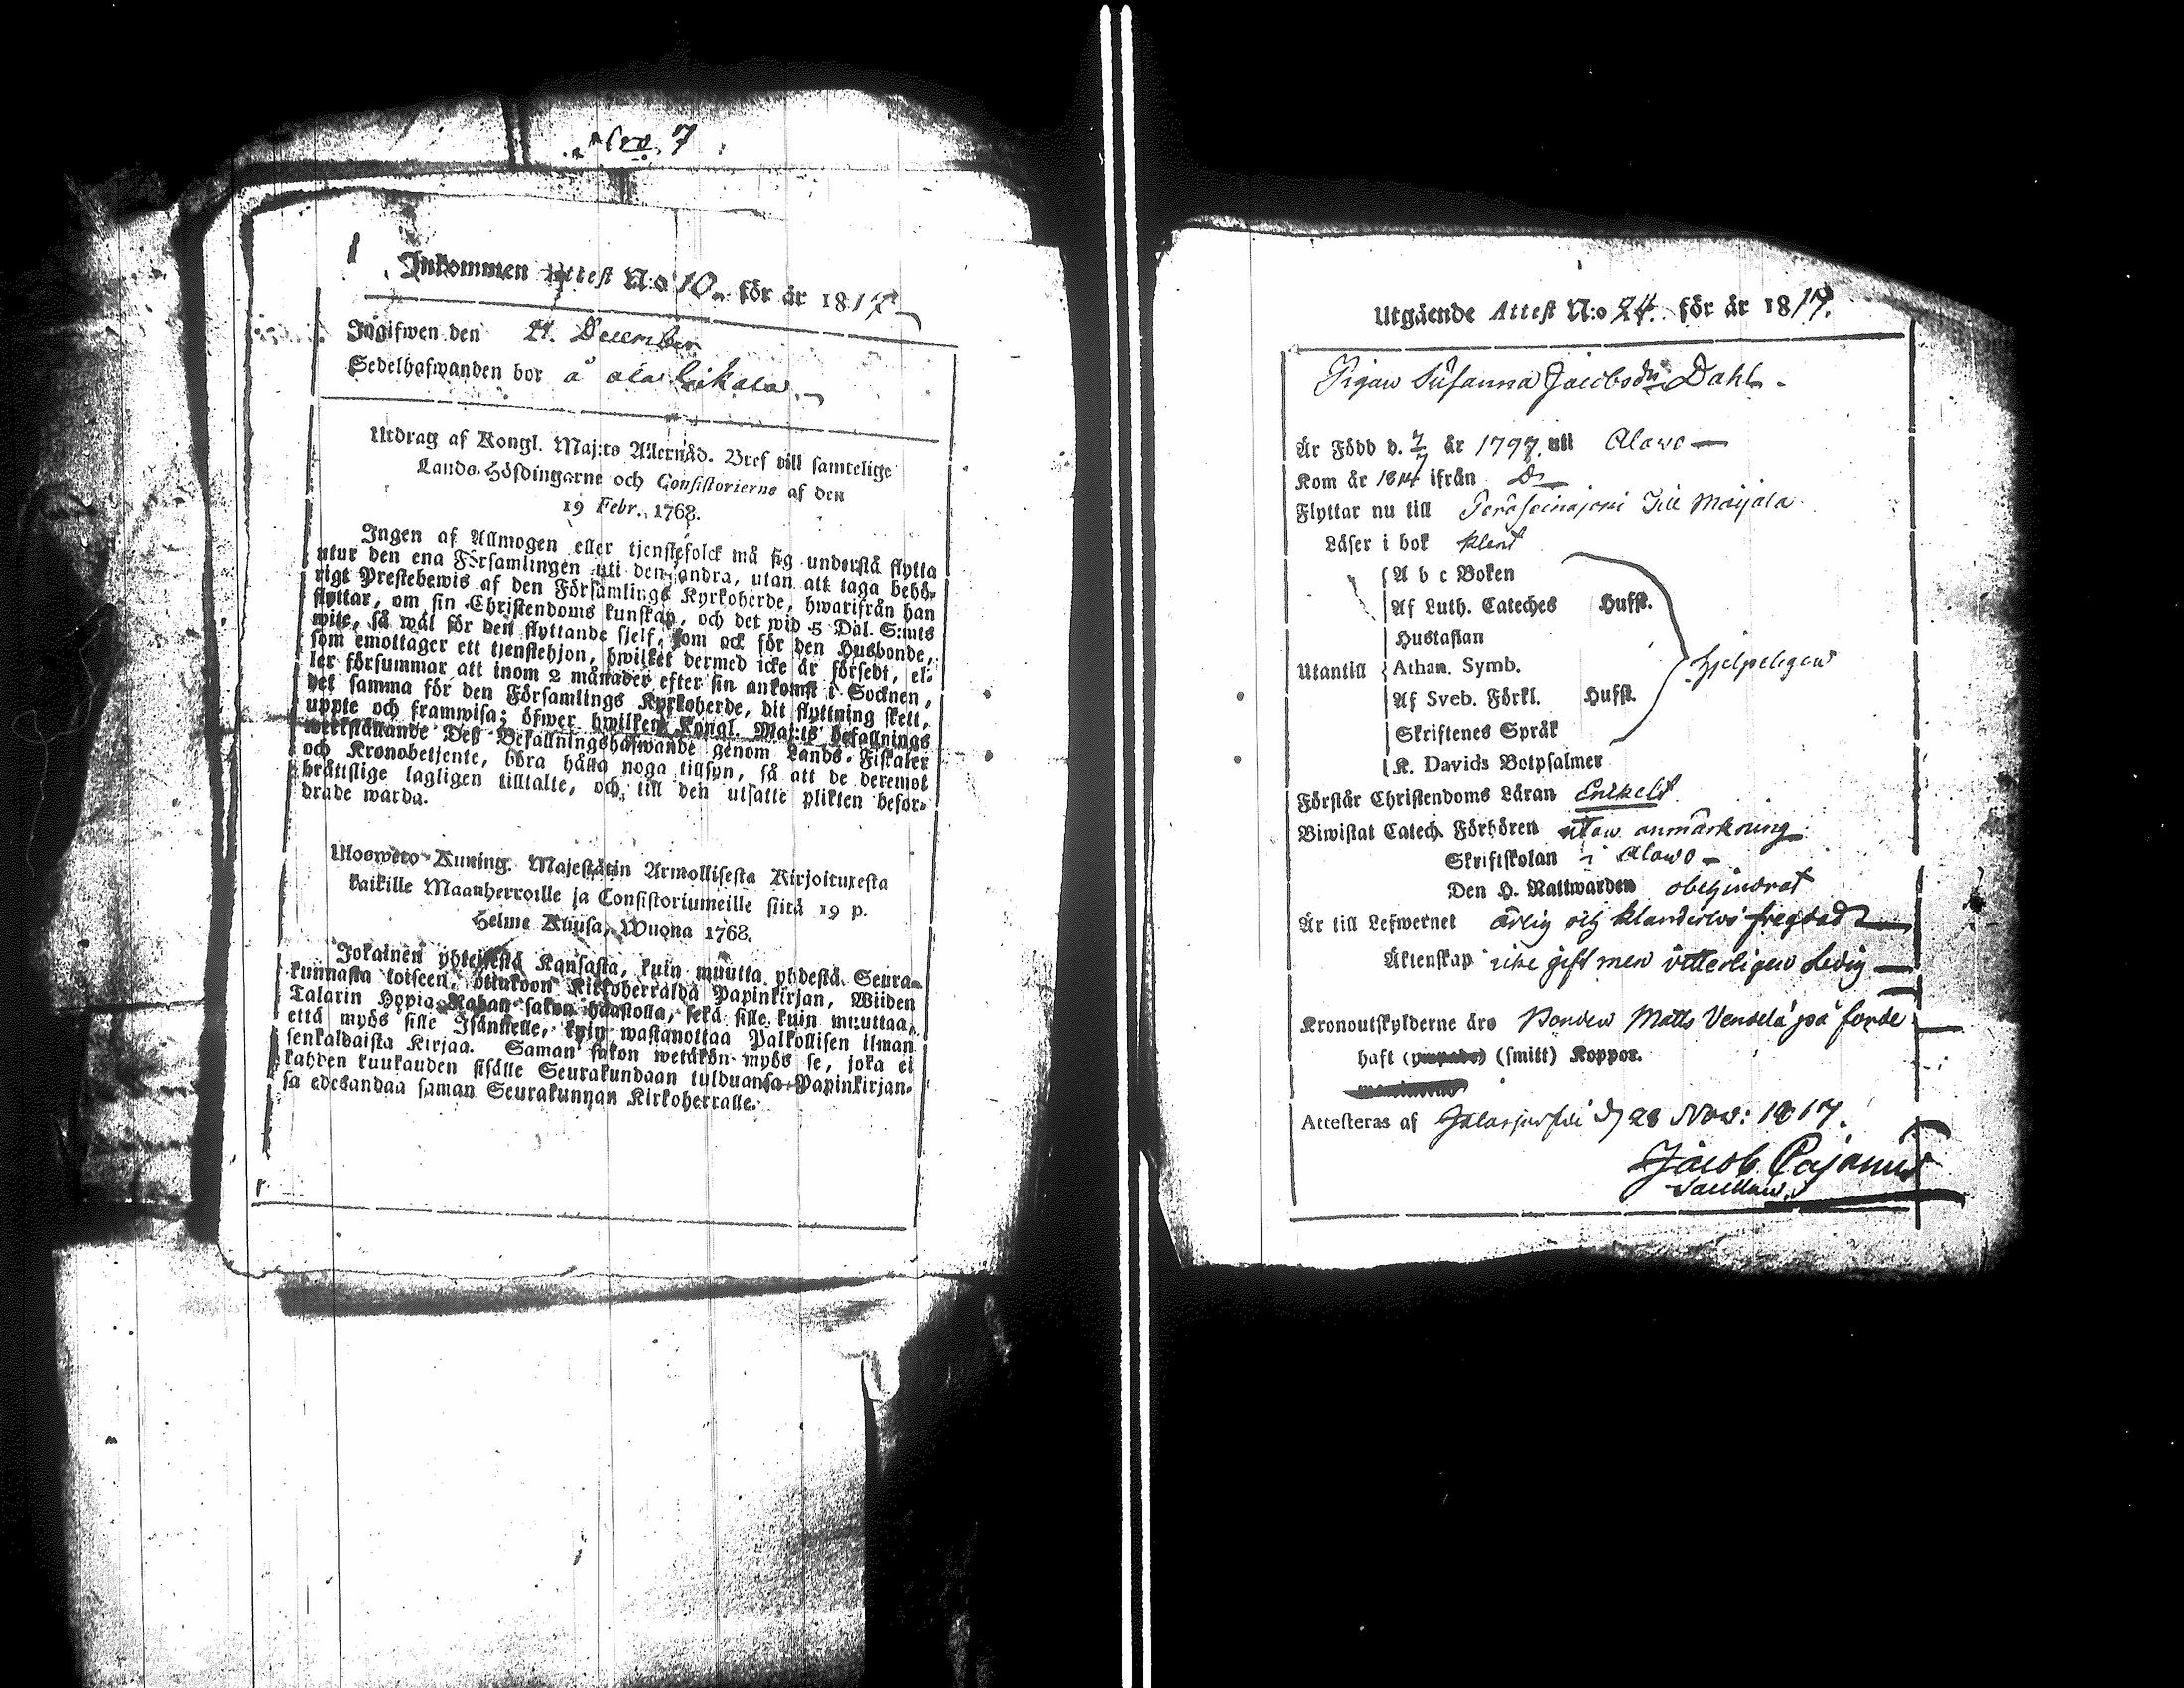 Nro. 7
1
Inkommen Attest N:o 10. för år 1817
Ingifwen den 21. December
Sedelhafwanden bor å ala
Utdrag af Kongl. Maj:ts Allernåd. Bref till samtelige
Lands-Höfdingarne och Consistorierne af den
19 Febr. 1768.
Ingen af Allmogen eller tjenstefolck må sig understå flytta
utur den ena Församlingen uti den andra, utan att taga behö-
rigt Prestebewis af den Församlings Kyrkoherde, hwarifrån han
flyttar, om sin Christendoms kunskap, och det wid 5 Dal. S:mts
wite, så wäl för den flyttande sjelf, som ock för den Husbonde,
som emottager ett tjenstehjon, hwilket dermed icke är försedt, el-
ler försummar att inom 2 månader efter sin ankomst i Socknen,
det samma för den Församlings Kyrkoherde, dit flyttning skett,
uppte och framwisa; öfwer hwilken Kongl. Maj:ts befallnings
werkställande Deß Befallningshafwande genom Lands-Fiskaler
och Kronobetjente, böra hålla noga tillsyn, så att de deremot
bråttslige lagligen tilltalte, och till den utsatte plikten befor-
drade warda.
Ulosweto Kuning. Majestätin Armollisesta Kirjoituxesta
kaikille Maanherroille ja Consistoriumeille siitä 19 p.
Helme Kuusa, Wuona 1768.
Jokainen yhteisestä Kansasta, kuin muutta yhdestä Seura-
kunnasta toiseen, ottakoon Kirkoherralda Papinkirjan, Wiiden
Talarin Hopia Rahan sakon haastolla, sekä sille kuin muuttaa,
että myös sille Isännelle, kuin wastanottaa Palkollisen ilman
senkaldaista Kirjaa. Saman sakon wetäkön myös se, joka ei
kahden kuukauden sisälle Seurakundaan tulduansa Papinkirjan-
sa edesandaa saman Seurakunnan Kirkoherralle.
Utgående Attest N:o 24. för år 1817.
Pigan Susanna Jacobsdr Dahl.
Är Född d. 7/7 år 1797. uti Alavo
Kom år 1814 ifrån Do
Flyttar nu till Peräseinäjoki Till Maijala
Läser i bok klent
A b c Boken
Af Luth. Cateches Husst.
Hustaflan
Utantill Athan. Symb. hjelpeligen
Af Sveb. Förkl. Husst.
Skriftenes Språk
K. Davids Botpsalmer
Förstår Christendoms Läran Enkelt
Biwistat Catech. Förhören utan anmärkning
Skriftskolan i Alavo
Den H. Nattwarden obehindrat
Är till Lefwernet ärlig och klanderlös fregdad
Äktenskap icke gift men vitterligen Ledig
Kronoutskylderne äro Bonden Matts Vendelä på förde
haft (smitt) Koppor.
Attesteras af Jalasjärfvi d 28 Nov: 1817.
Jacob Pajanus